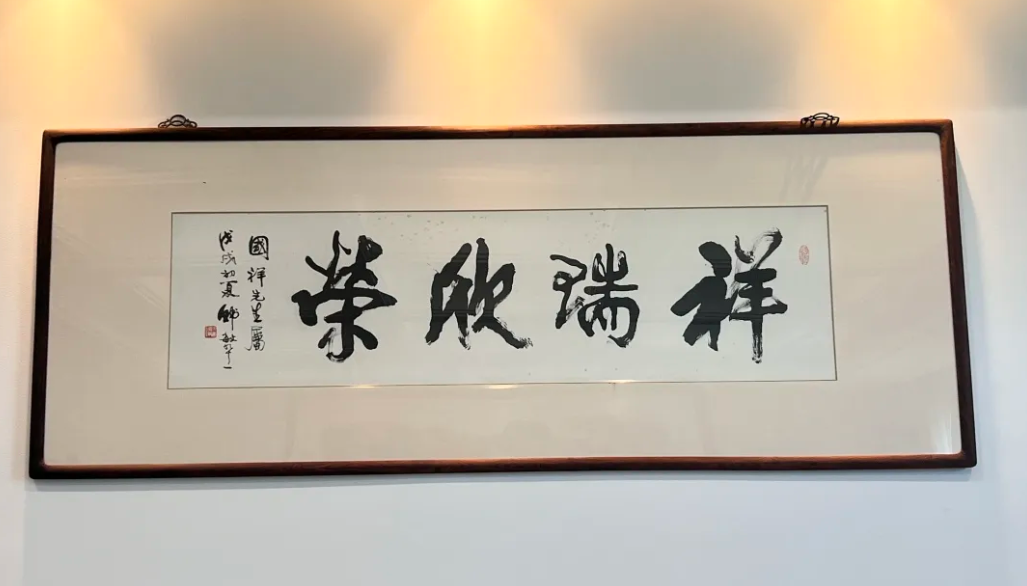 祥瑞欣榮
國祥先生屬
戊戌初夏